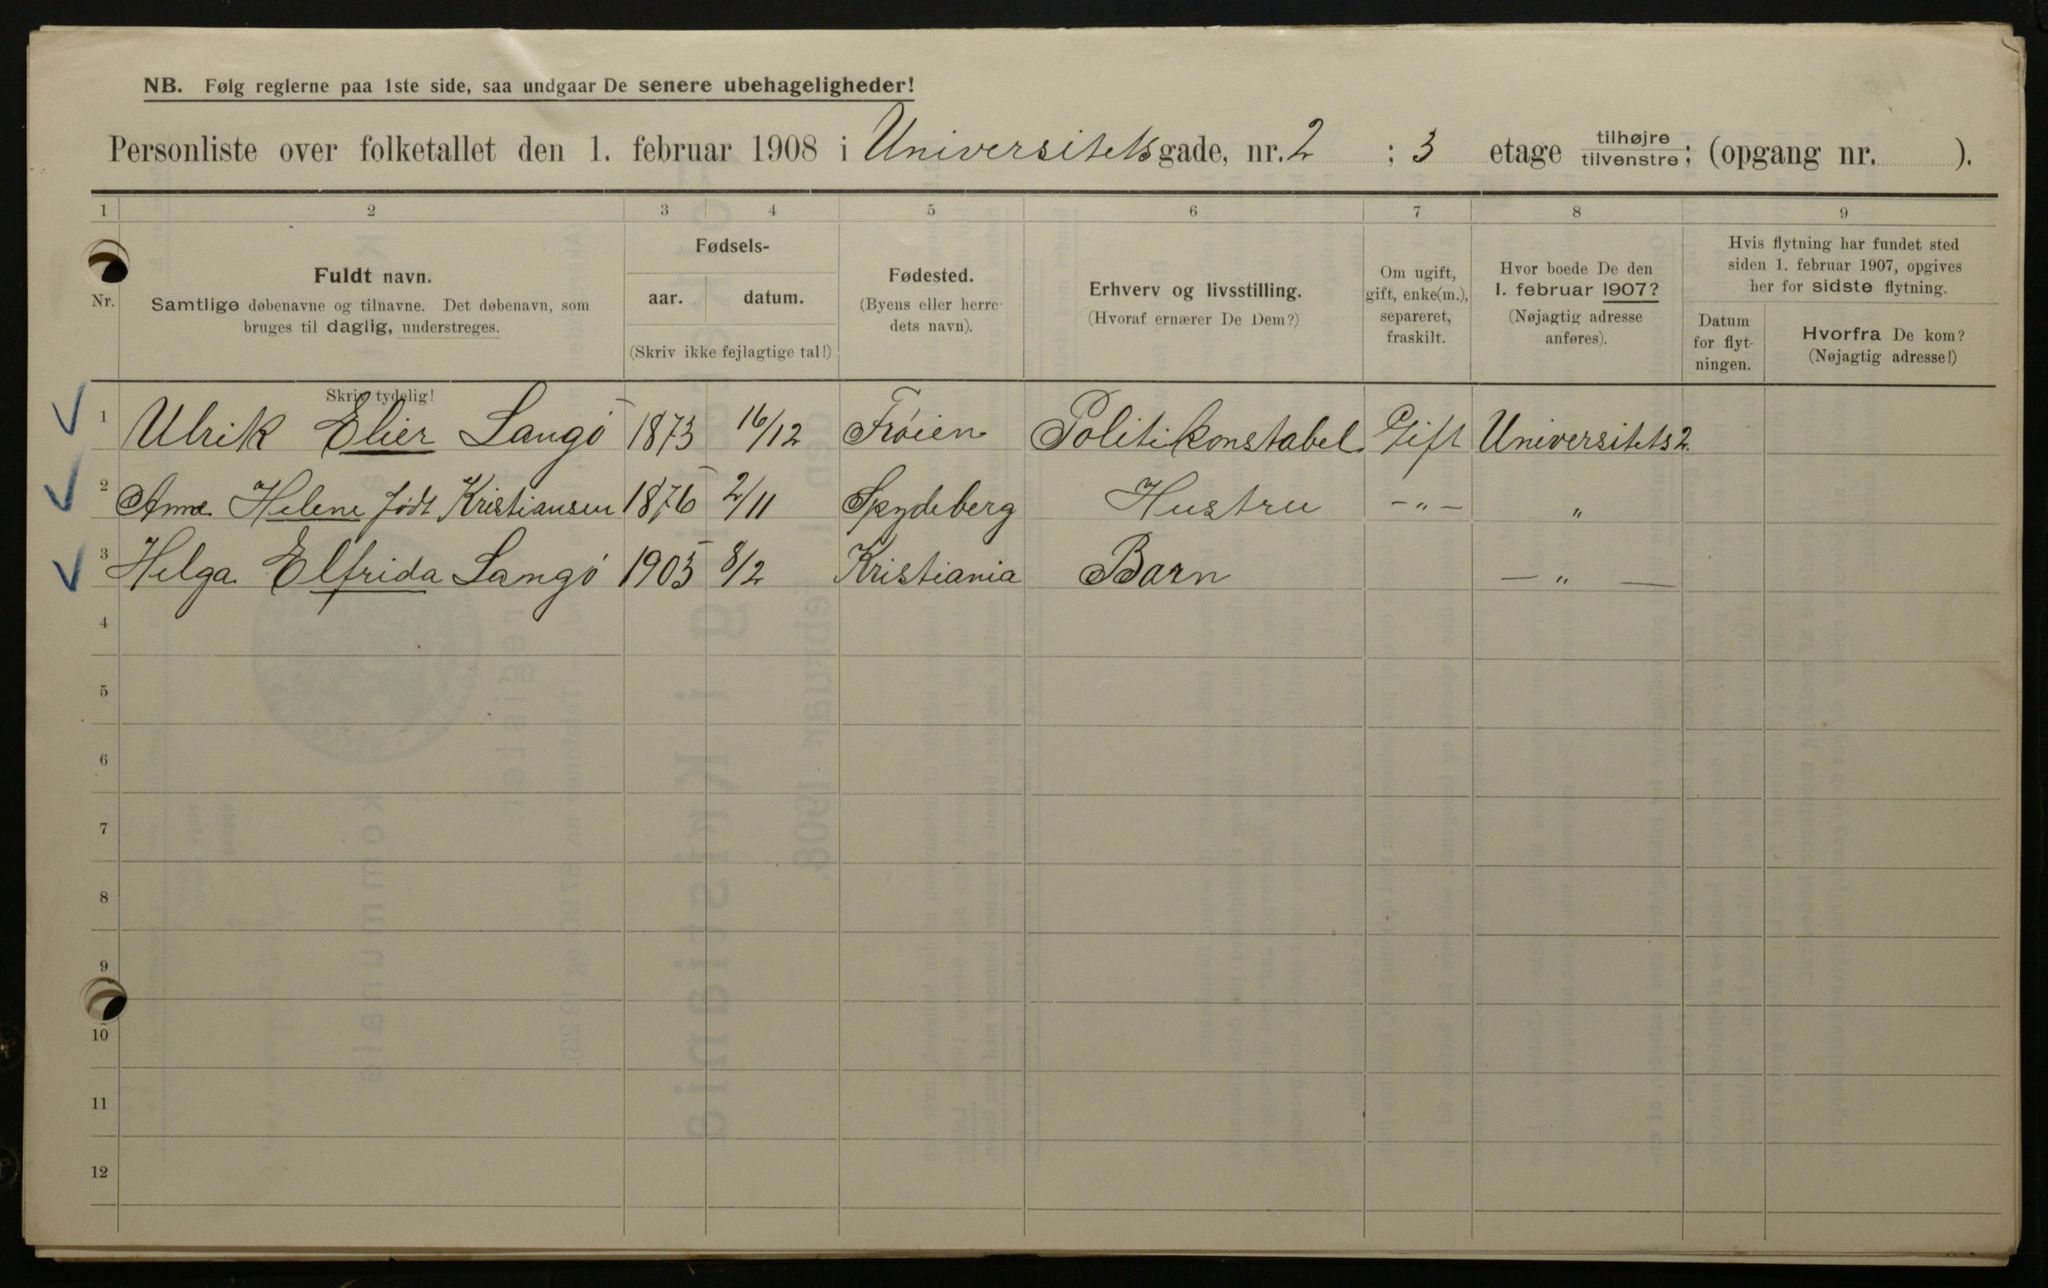 NB. Følg reglerne paa 1ste side, saa undgaar De senere ubehageligheder!
Personliste over folketallet den 1. februar 1908 i Universitetsgade, nr. 2 ; 3 etage tilhøjre tilvenstre; (opgang nr. ).
1 2 3 4 5 6 7 8 9
Nr.
Fuldt navn.
Samtlige døbenavne og tilnavne. Det døbenavn, som
bruges til daglig, understreges.
Skriv tydelig!
Fødsels-
aar. datum.
(Skriv ikke fejlagtige tal!)
Fødested.
(Byens eller herre-
dets navn).
Erhverv og livsstilling.
(Hvoraf ernærer De Dem?)
Om ugift,
gift, enke(m.),
separeret,
fraskilt.
Hvor boede De den
1. februar 1907?
(Nøjagtig adresse
anføres).
Hvis flytning har fundet sted
siden 1. februar 1907, opgives
her for sidste flytning.
Datum
for flyt-
ningen.
Hvorfra De kom?
(Nøjagtig adresse!)
1 Ulrik Elier Langö 1873 16/12 Frøien Politikonstabel Gift Universitets 2.
2 Anne Helene født Kristiansen 1876 2/11 Spydeberg Hustru -„- „
3 Helga Elfrida Langö 1905 8/2 Kristiania Barn — „ —
4
5
6
7
8
9
10
11
12